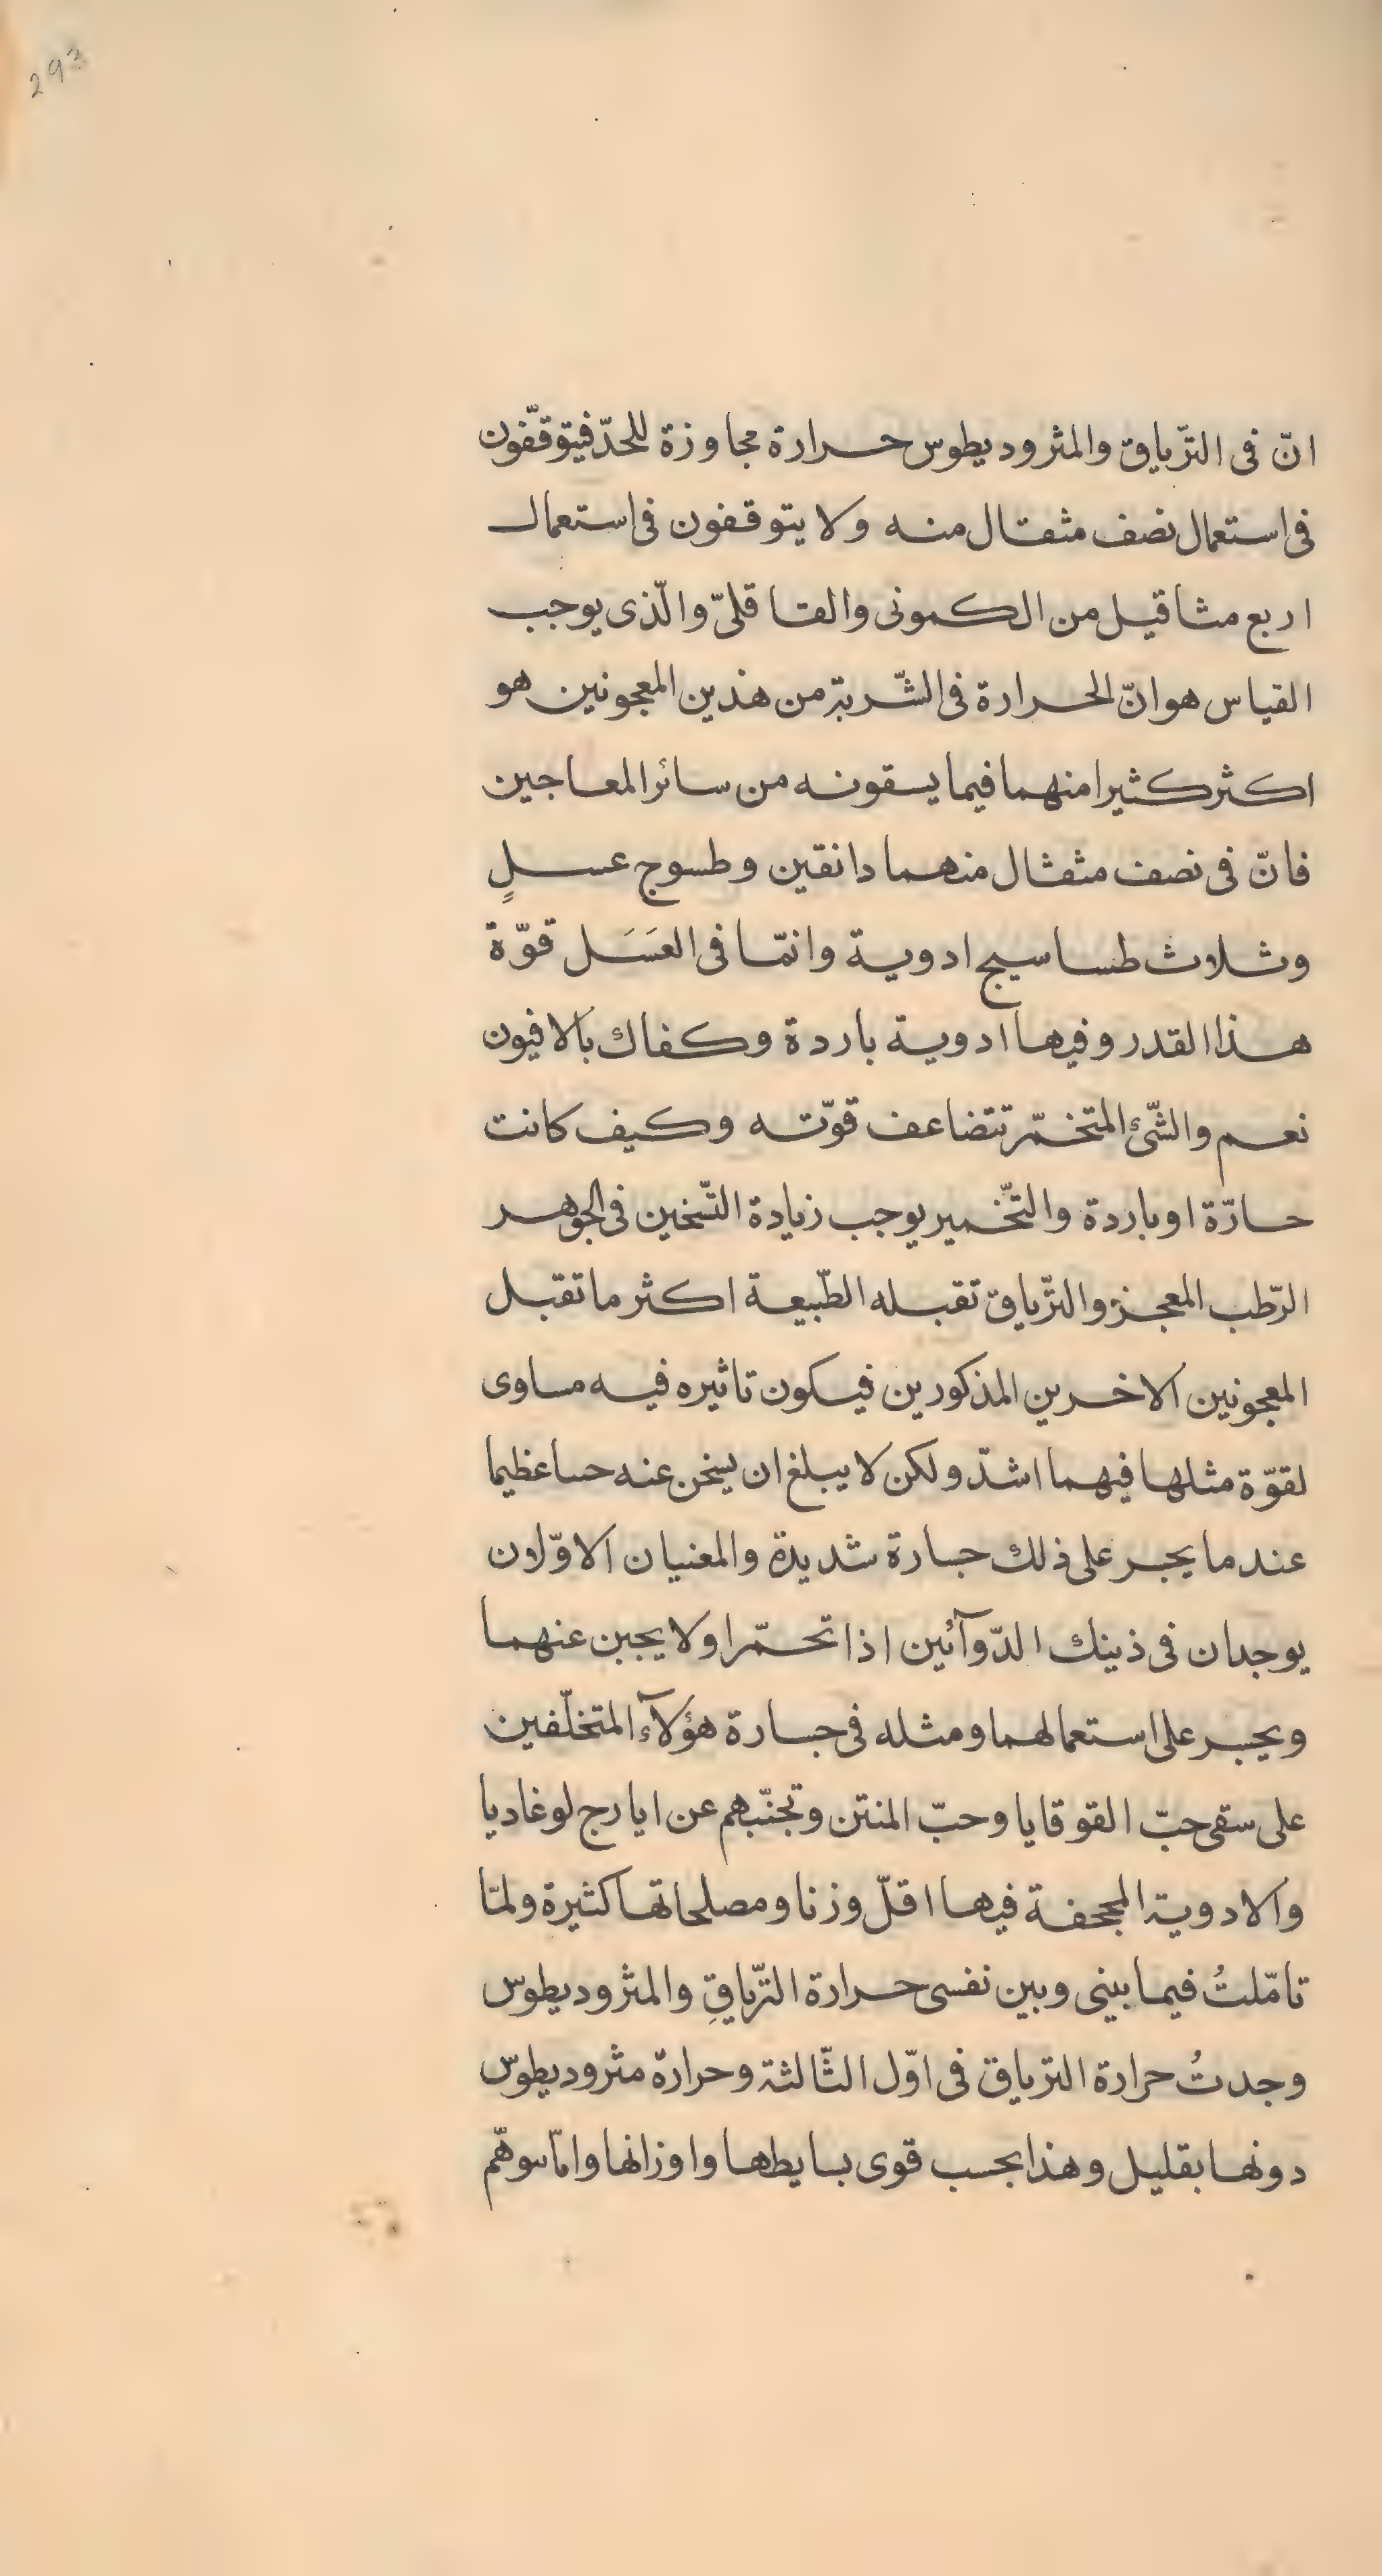 293
انّ فى التّرياق والمثروديطوس حرارة مجاوزة للحدّ فيتوقّفون
فى استعمال نصف مثقال منه ولا يتوقفون فى استعمال
اربع مثاقيل من الكمونى والقاقلىّ والّذى يوجب
القياس هو انّ الحرارة فى الشّربة من هذين المعجونين هو
اكثر كثيرا منهما فيما يسقونه من سائر المعاجين
فانّ فى نصف مثقال منهما دانقين وطسوج عسلٍ
وثلاث طساسيج ادوية وانمّا فى العَسَل قوّة
هذا القدر وفيها ادوية باردة وكفاك بالافيون
نعم والشّئ المتخمّر تتضاعف قوّته وكيف كانت
حارّة او باردة والتّخمير يوجب زيادة التّسخين فى الجوهر
الرّطب المعجز والتّرياق تقبله الطّبيعة اكثر ما تقبل
المعجونين الاخرين المذكورين فيكون تاثيره فيه مساوى
لقوّة مثلها فيهما اشدّ ولكن لا يبلغ ان يسخن عنه حسا عظيما
عند ما يجسر على ذلك جسارة شديدة والمعنيان الاوّلان
يوجدان فى ذينك الدّوآئين اذا تخمّرا ولا يجبن عنهما
ويجسر على استعمالهما ومثله فى جسارة هؤلآء المتخلّفين
على سقى حبّ القوقايا وحبّ المنتن وتجنّبهم عن ايارج لوغاديا
والادوية المجحفة فيها اقلّ وزنا ومصلحاتها كثيرة ولمّا
تامّلتُ فيما بيني وبين نفسى حرارة التّرياقِ والمثروديطوس
وجدتُ حرارة الترياق فى اوّل الثّالثة وحرارة مثروديطوس
دونها بقليل وهذا بحسب قوى بسايطها واوزانها وامّا